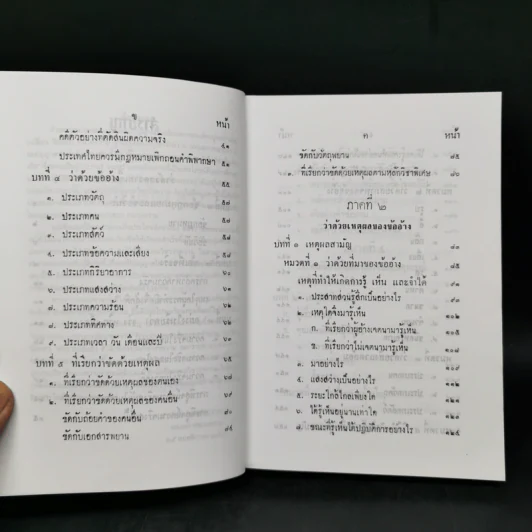 ข
หน้า
คดีตัวอย่างที่ตัดสินผิดความจริง ๔๑
ประเทศไทยควรมีกฎหมายเพิกถอนคำพิพากษา
บทที่ ๔ ว่าด้วยข้ออ้าง ๕๕
๑. ประเภทวัตถุ ๕๗
๒. ประเภทคน ๕๗
๓. ประเภทสัตว์ ๕๘
๔. ประเภทข้อความและเสียง ๕๘
๕. ประเภทกิริยาอาการ ๖๐
๖. ประเภทแสงสว่าง ๖๑
๗. ประเภทความร้อน ๖๑
๘. ประเภททิศทาง
๙. ประเภทเวลา วัน เดือนและปี
บทที่ ๕ ที่เรียกว่าขัดด้วยเหตุผล ๖๕
๑. ที่เรียกว่าขัดด้วยเหตุผลของตนเอง ๖๗
๒. ที่เรียกว่าขัดด้วยเหตุผลของคนอื่น
ขัดกับถ้อยคำของคนอื่น
ขัดกับเอกสารพยาน
ค
หน้า
ขัดกับวัตถุพยาน ๗๕
๓. ที่เรียกว่าขัดด้วยเหตุผลตามหลักวิชาพิเศษ
ภาคที่ ๒
ว่าด้วยเหตุผลของข้ออ้าง
บทที่ ๑ เหตุผลสามัญ
หมวดที่ ๑ ว่าด้วยที่มาของข้ออ้าง ๘๕
เหตุที่ทำให้เกิดการรู้ เห็น และจำได้
๑. ประสาทส่วนรู้สึกเป็นอย่างไร
๒. เหตุใดจึงมารู้เห็น
ก. ที่เรียกว่ามีผู้อ้างเจตนามารู้เห็น
ข. ที่เรียกว่าไม่เจตนามารู้เห็น
๓. มาอย่างไร
๔. แสงสว่างเป็นอย่างไร
๕. ระยะใกล้ไกลเพียงใด
๖. ได้รู้เห็นอยู่นานเท่าใด
๗. ขณะที่รู้เห็นได้ปฏิบัติการอย่างไร